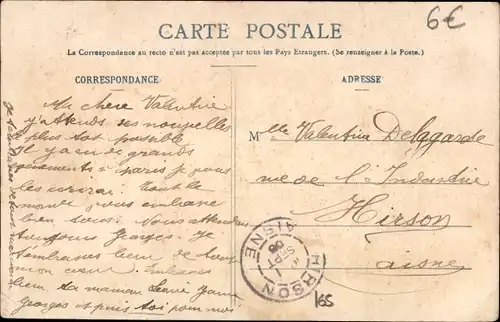 6€
CARTE POSTALE
La Correspondance au recto n'est pas acceptée par tous les Pays Etrangers. (Se renseigner à la Poste.)
CORRESPONDANCE
ADRESSE
Ma chère Valentine
j'attends des nouvelles
le plus tôt possible
Il y a eu de grands
à paris je vous
les écrirai Tout le
monde vous embrasse
bien tous. Nous attendons
toujours Georges. Je
t'embrasse bien de tout
mon cœur. Embrasse
bien ta maman
Georges et puis toi pour moi
Mlle Valentine Delagarde
rue de l'Industrie
Hirson
aisne
HIRSON
AISNE
SEPT
165